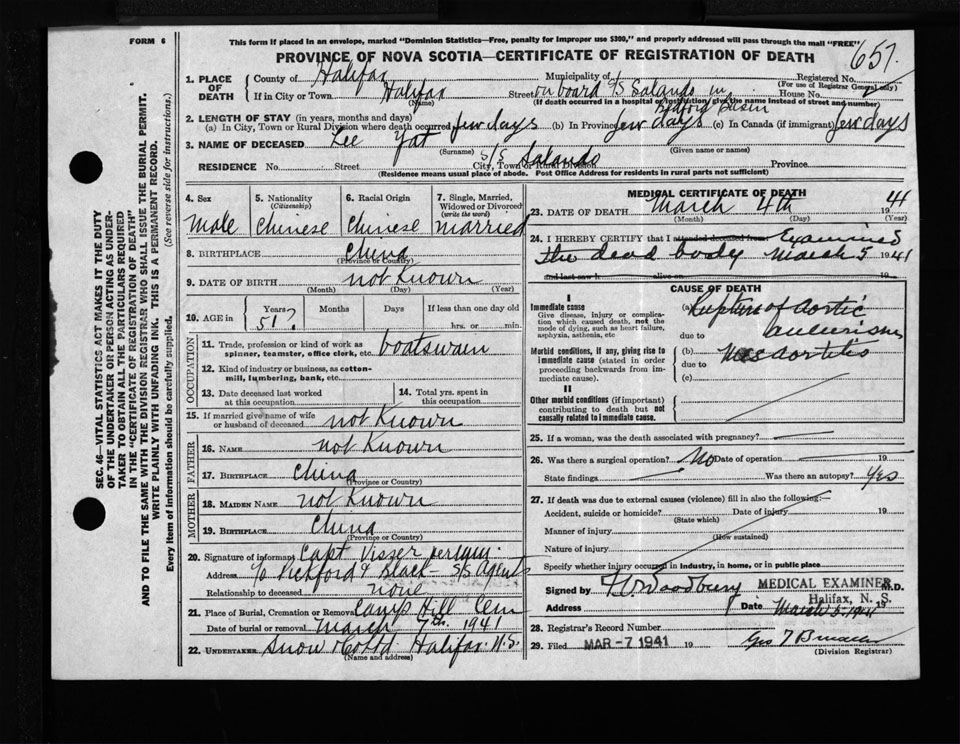 FORM 6
This form if placed in an envelope, marked "Dominion Statistics—Free, penalty for improper use $300," and properly addressed will pass through the mail "FREE"
PROVINCE OF NOVA SCOTIA—CERTIFICATE OF REGISTRATION OF DEATH
657
1. PLACE OF DEATH
County of Halifax
Municipality of
Registered No.
(For use of Registrar General only)
If in City or Town Halifax Street on board S/S Salando in House No.
(Name)
(If death occurred in a hospital or institution, give the name instead of street and number)
Bedford Basin
2. LENGTH OF STAY (in years, months and days)
(a) In City, Town or Rural Division where death occurred few days (b) In Province few days (c) In Canada (if immigrant) few days
3. NAME OF DECEASED Lee Yat
(Surname) (Given name or names)
RESIDENCE No. Street S/S Salando City, Town or Rural Division Province
(Residence means usual place of abode. Post Office Address for residents in rural parts not sufficient)
4. Sex Male
5. Nationality (Citizenship) Chinese
6. Racial Origin Chinese
7. Single, Married, Widowed or Divorced (write the word) Married
8. BIRTHPLACE China
(Province or Country)
9. DATE OF BIRTH not Known
(Month) (Day) (Year)
10. AGE in Years 51? Months Days If less than one day
hrs. or min.
OCCUPATION
11. Trade, profession or kind of work as spinner, teamster, office clerk, etc. boatswain
12. Kind of industry or business, as cotton-mill, lumbering, bank, etc.
13. Date deceased last worked at this occupation
14. Total yrs. spent in this occupation
15. If married give name of wife or husband of deceased not Known
FATHER
16. NAME not Known
17. BIRTHPLACE China
(Province or Country)
MOTHER
18. MAIDEN NAME not Known
19. BIRTHPLACE China
(Province or Country)
20. Signature of informant Capt Visser
Address c/o Pickford & Black – S/S Agents
Relationship to deceased none
21. Place of Burial, Cremation or Removal Camp Hill Cem
Date of burial or removal March 7th. 1941
22. UNDERTAKER Snow & Co Ltd Halifax N.S.
(Name and address)
MEDICAL CERTIFICATE OF DEATH
23. DATE OF DEATH March 4th 1941
(Month) (Day) (Year)
24. I HEREBY CERTIFY that I attended deceased from Examined
the dead body March 5 1941
and last saw h alive on 19
CAUSE OF DEATH
I
Immediate cause
Give disease, injury or complication which caused death, not the mode of dying, such as heart failure, asphyxia, asthenia, etc.
(a) Rupture of aortic aneurism
due to
Morbid conditions, if any, giving rise to immediate cause (stated in order proceeding backwards from immediate cause).
(b) Mesaortitis
due to
(c)
II
Other morbid conditions (if important) contributing to death but not causally related to immediate cause.
25. If a woman, was the death associated with pregnancy?
26. Was there a surgical operation? No Date of operation 19
State findings Was there an autopsy? Yes
27. If death was due to external causes (violence) fill in also the following:—
Accident, suicide or homicide? Date of injury 19
(State which)
Manner of injury
(How sustained)
Nature of injury
Specify whether injury occurred in industry, in home, or in public place
Signed by Woodbury MEDICAL EXAMINER M.D.
Halifax, N. S.
Address Date March 5, 1941 19
28. Registrar's Record Number
29. Filed MAR -7 1941 19
(Division Registrar)
SEC. 46—VITAL STATISTICS ACT MAKES IT THE DUTY
OF THE UNDERTAKER OR PERSON ACTING AS UNDERTAKER TO OBTAIN ALL THE PARTICULARS REQUIRED
IN THE "CERTIFICATE OF REGISTRATION OF DEATH"
AND TO FILE THE SAME WITH THE DIVISION REGISTRAR WHO SHALL ISSUE THE BURIAL PERMIT.
WRITE PLAINLY WITH UNFADING INK. THIS IS A PERMANENT RECORD.
Every item of information should be carefully supplied. (See reverse side for instructions.)